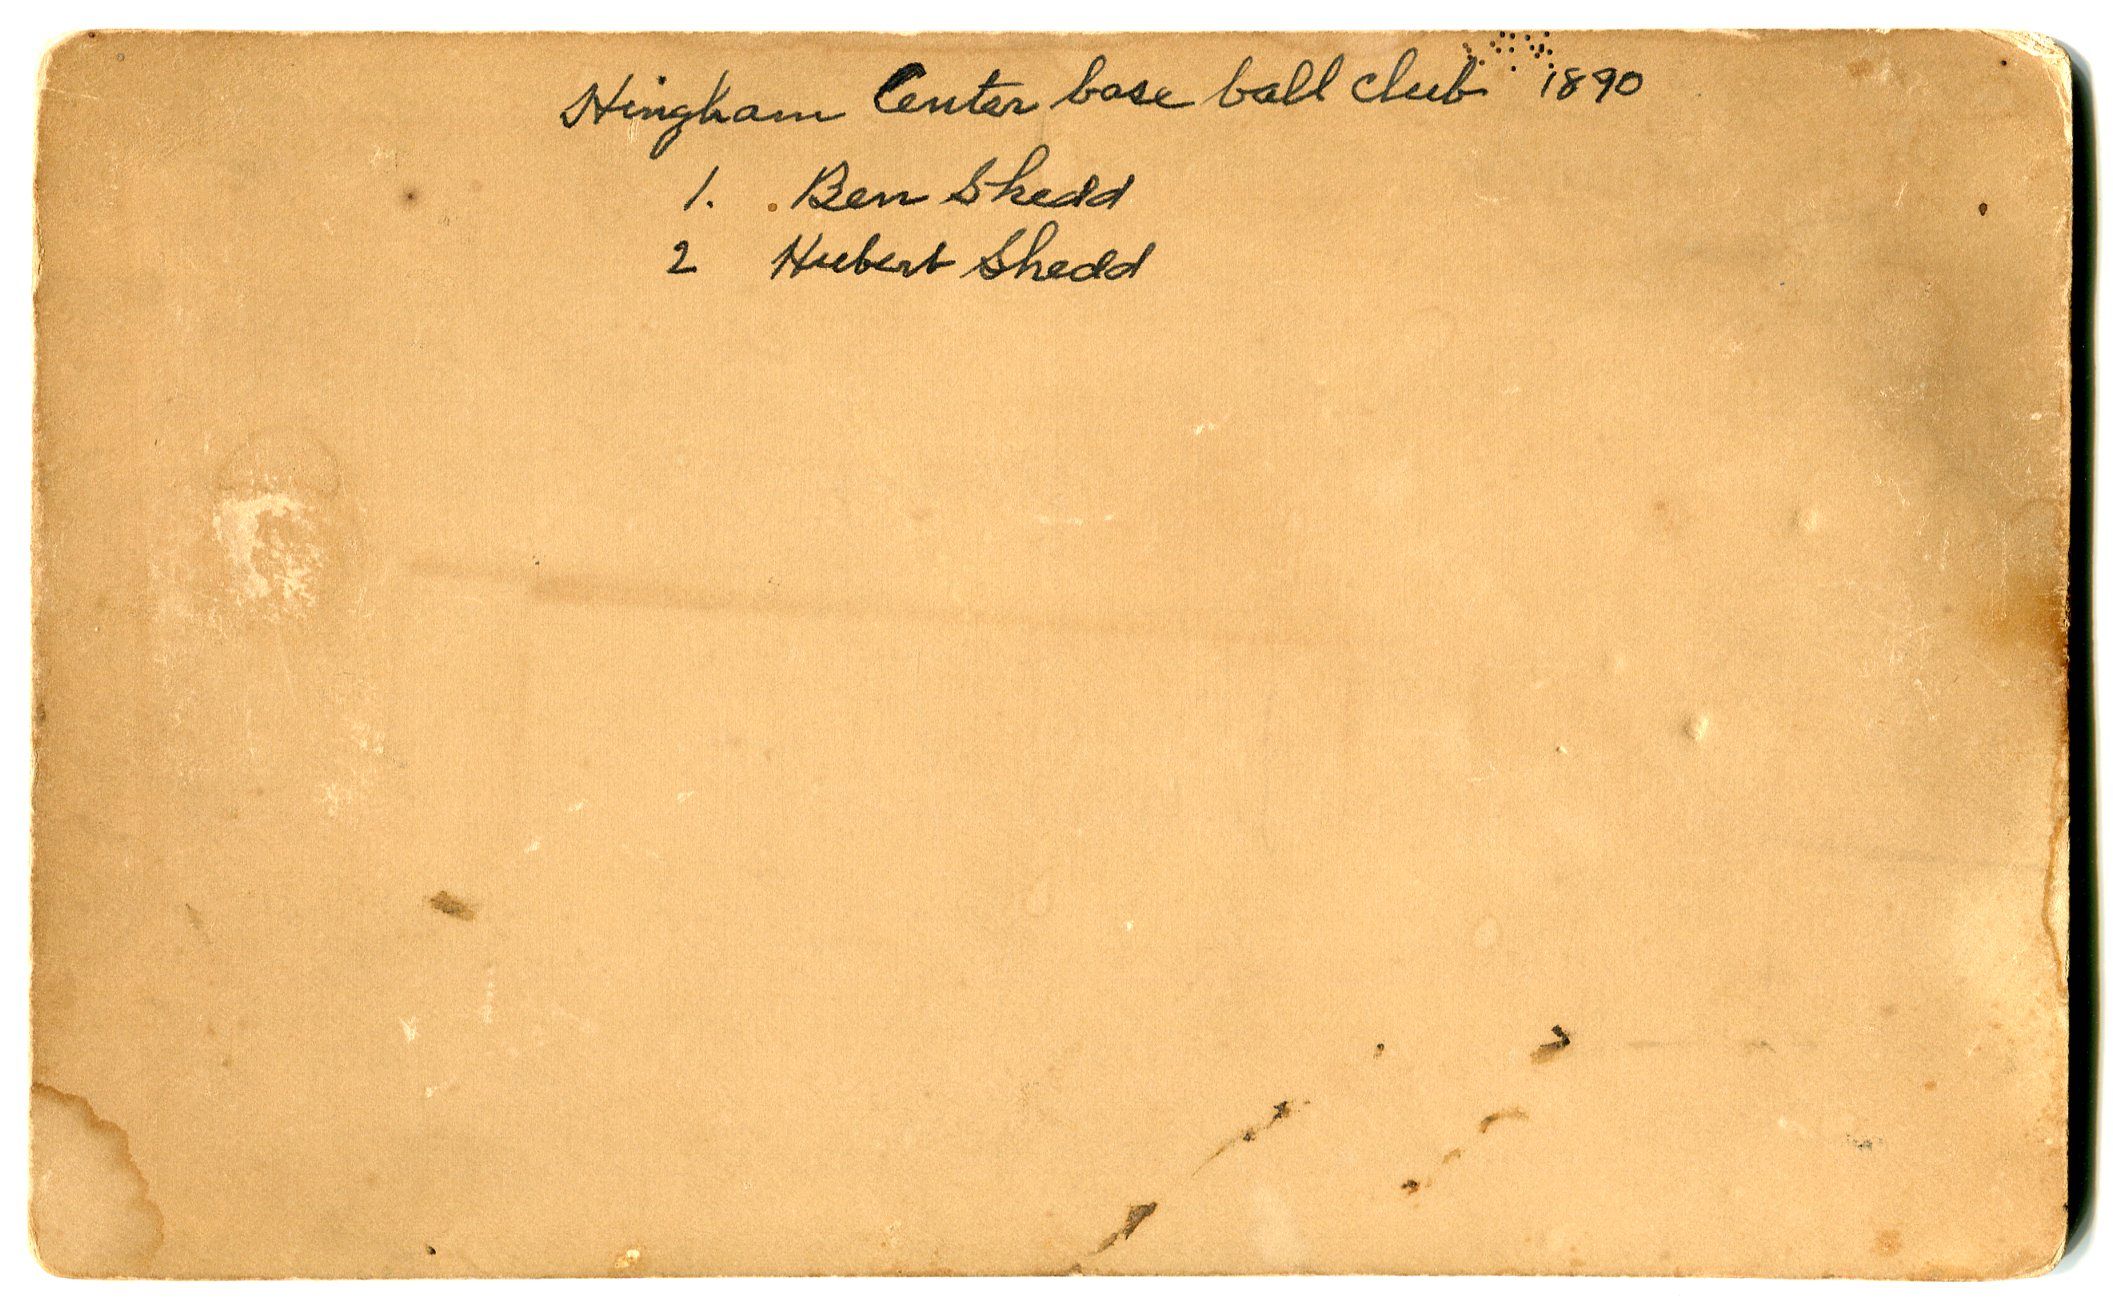 Hingham Center base ball club 1890
1. Ben Shedd
2 Hubert Shedd